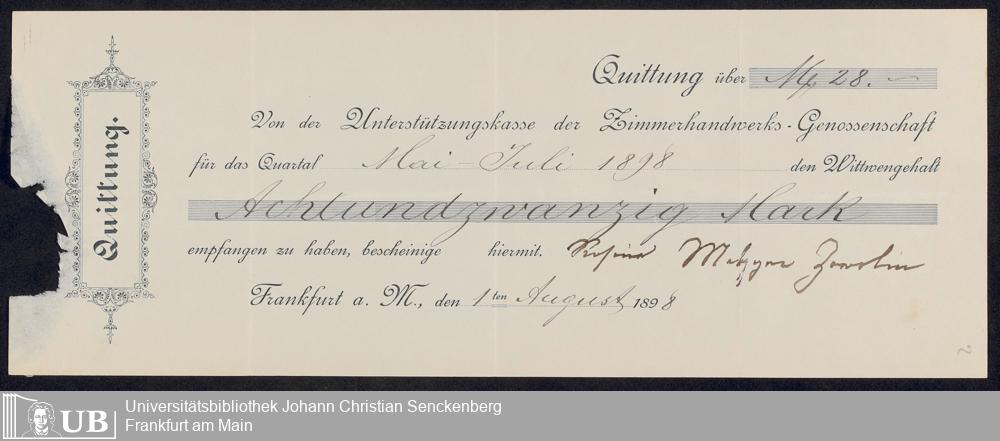 Quittung.
Quittung über M 28. —
Von der Unterstützungskasse der Zimmerhandwerks-Genossenschaft
für das Quartal Mai – Juli 1898 den Wittwengehalt
Achtundzwanzig Mark
empfangen zu haben, bescheinige hiermit. Metzger
Frankfurt a. M., den 1ten August 1898
2
UB
Universitätsbibliothek Johann Christian Senckenberg
Frankfurt am Main